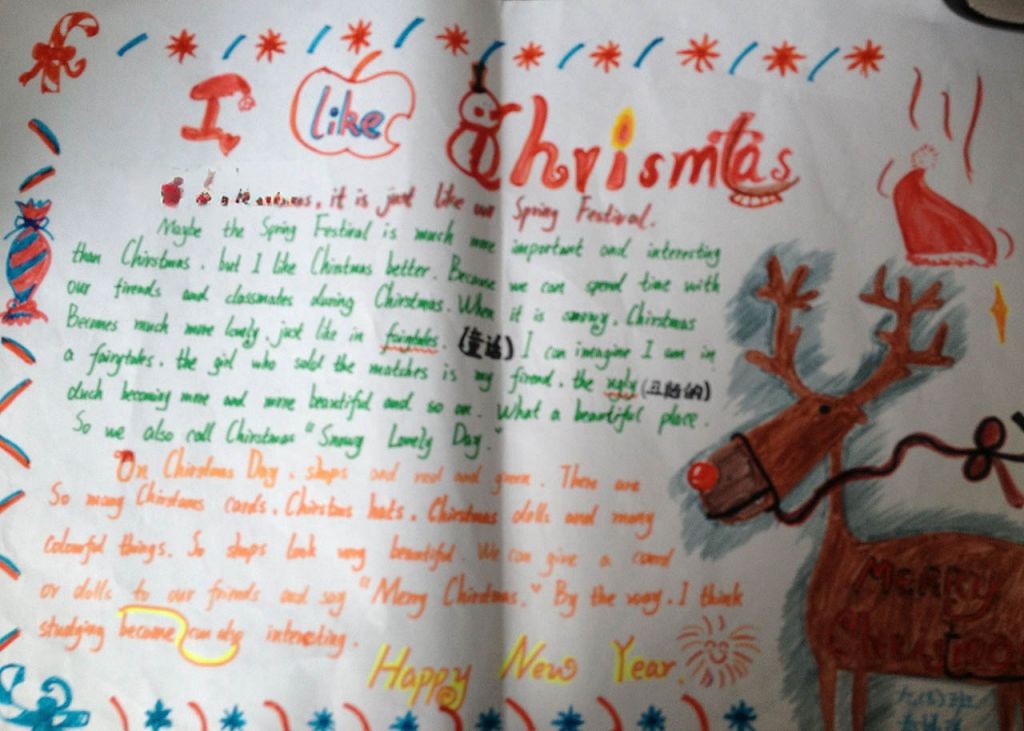 I like Chrismtas
, it is just like our Spring Festival.
Maybe the Spring Festival is much more important and interesting
than Chirstmas. but I like Chirstmas better. Because we can spend time with
our firends and classmates during Chirstmas. When it is snowy. Chirstmas
Becomes much more lovely. just like in fairytales. (童话) I can imagine I am in
a fairytales. the girl who sold the matches is my firend. the ugly (丑陋的)
duck becoming more and more beautiful and so on. What a beautiful place.
So we also call Chirstmas "Snowy Lovely Day.
On Chirstmas Day. shops and red and green. There are
So many Chirstmas cards. Chirstmas hats. Chirstmas dolls and many
colourful things. So shops look very beautiful. We can give a card
or dolls to our friends and say "Merry Chirstmas." By the way. I think
studying become can also interesting.
Happy New Year.
MeRRy
Christmas